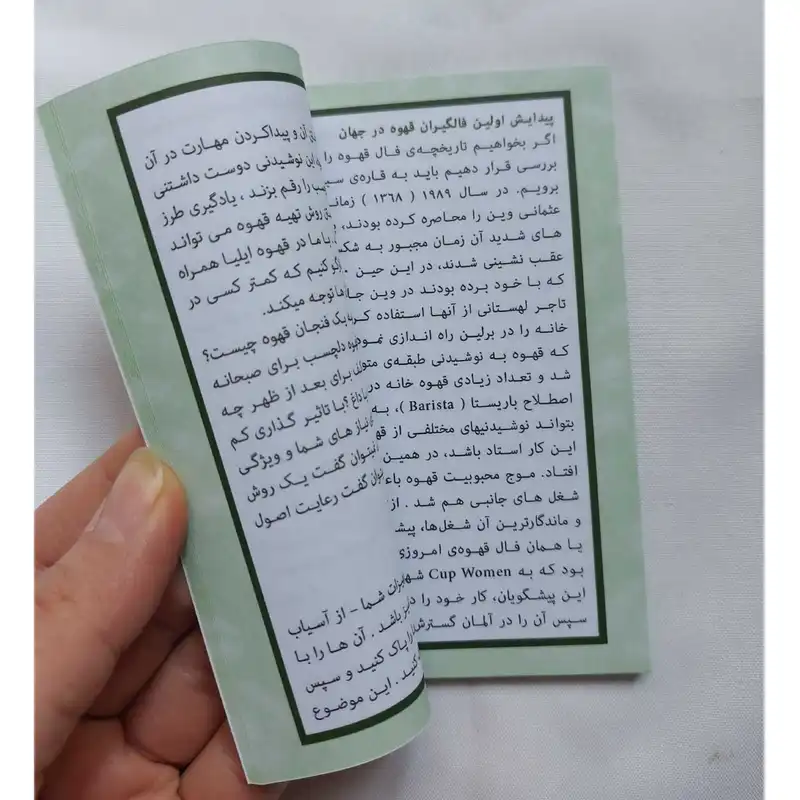 پیدایش اولین فالگیران قهوه در جهان
اگر بخواهیم تاریخچه‌ی فال قهوه را
بررسی قرار دهیم باید به قاره‌ی
برویم. در سال ۱۹۸۹ ( ۱۳۶۸ )
عثمانی وین را محاصره کرده بودند،
های شدید آن زمان مجبور به
عقب نشینی شدند، در این حین
که با خود برده بودند در وین
تاجر لهستانی از آنها استفاده
خانه را در برلین راه اندازی
که قهوه به نوشیدنی طبقه‌ی
شد و تعداد زیادی قهوه خانه
اصطلاح باریستا ( Barista )، به
بتواند نوشیدنیهای مختلفی از
این کار استاد باشد، در همین
افتاد. موج محبوبیت قهوه
شغل های جانبی هم شد . از
و ماندگارترین آن شغل‌ها،
یا همان فال قهوه‌ی امروزی
بود که به Cup Women
این پیشگویان، کار خود را
سپس آن را در آلمان
آن و پیداکردن مهارت در آن
این نوشیدنی دوست داشتنی
را رقم بزند ، یادگیری طرز
روش تهیه قهوه می تواند
با ما در قهوه ایلیا همراه
کنیم که کمتر کسی در
توجه میکند.
یک فنجان قهوه چیست؟
دلچسب برای صبحانه
برای بعد از ظهر چه
داغ ؟با تاثیر گذاری کم
نیاز های شما و ویژگی
گفت یک روش
گفت رعایت اصول
شما - از آسیاب
باشد . آن ها را با
پاک کنید و سپس
کنید . این موضوع